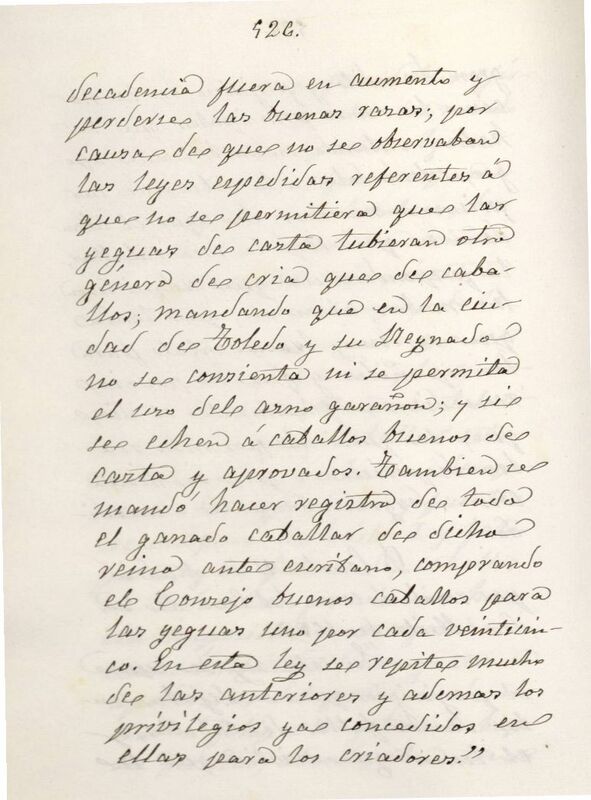 526.
decadencia fuera en aumento y
perderse las buenas razas; por
causa de que no se observaban
las leyes espedidas referentes á
que no se permitiera que las
yeguas de casta tubieran otro
género de cria que de caba-
llos; mandando que en la ciu-
dad de Toledo y su Reynado
no se consienta ni se permita
el uso del asno garañon; y si
se echen á caballos buenos de
casta y aprovados. Tambien se
mandó hacer registro de todo
el ganado caballar de dicho
reino ante escribano, comprando
el Consejo buenos caballos para
las yeguas uno por cada veinticin-
co. En esta ley se repite mucho
de las anteriores y ademas los
privilegios ya concedidos en
ellas para los criadores."